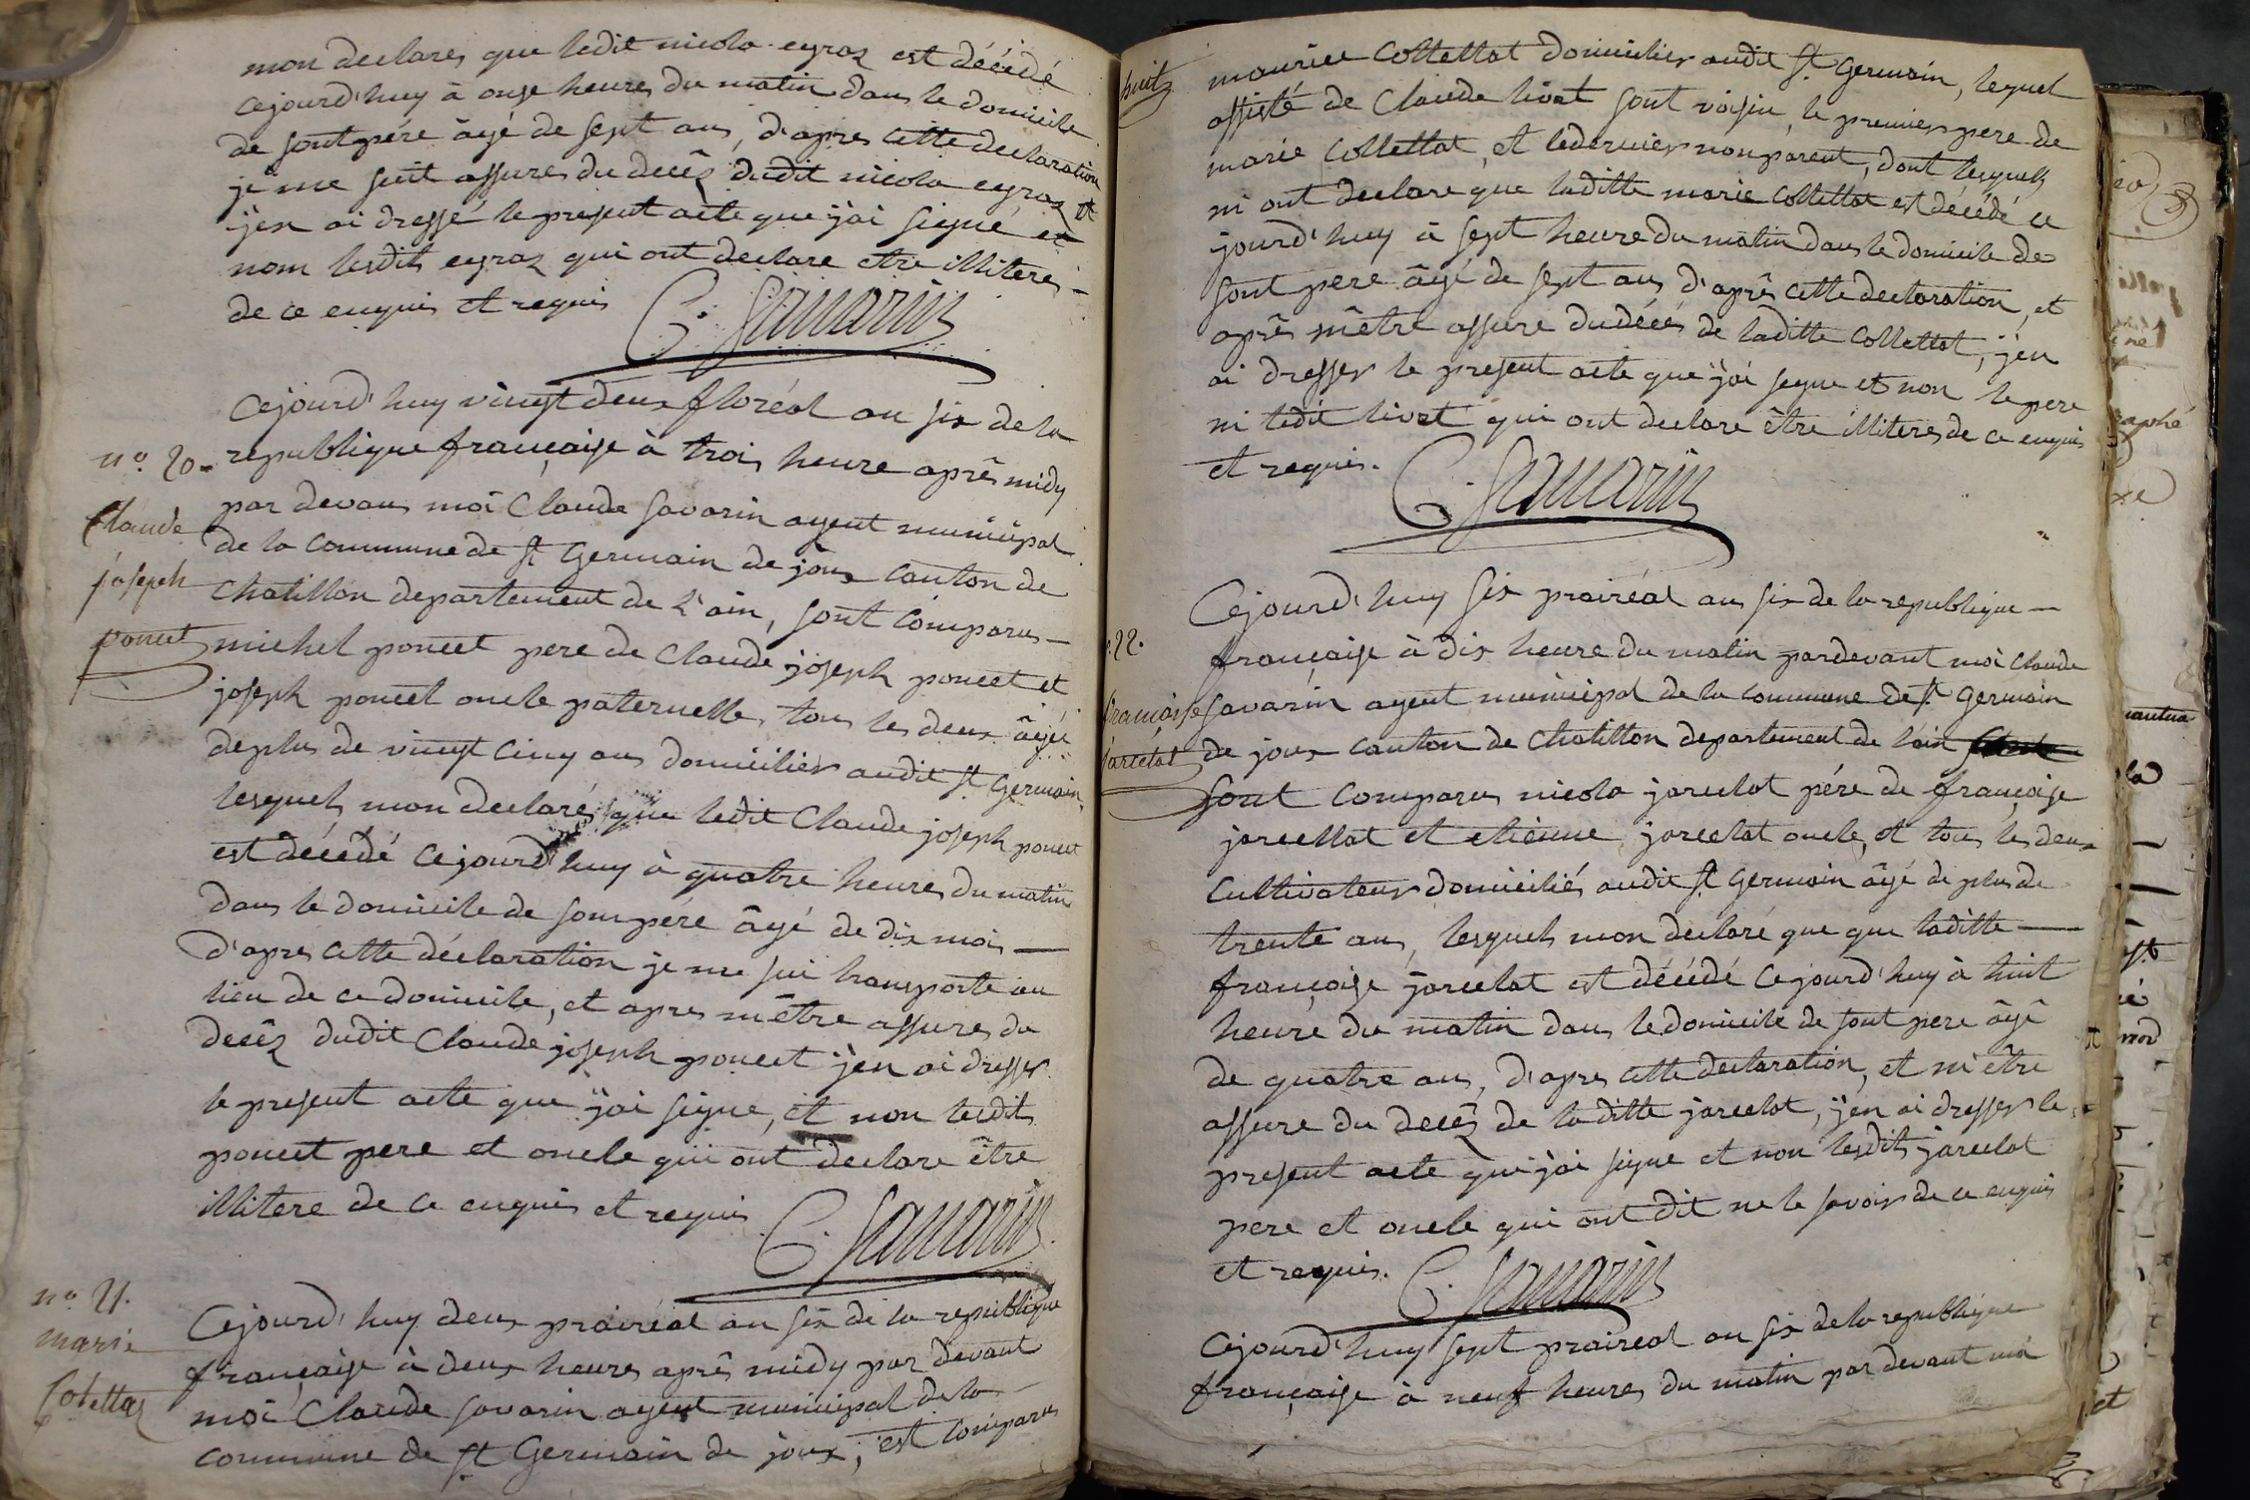 mon declares que ledit nicola eyraz est décédé
cejourd'huy à onse heures du matin dans le domicile
de sont pére âgé de sept ans, d'apres cette declaration
je me suit assures du decês dudit nicola eyraz et
j'en ai dressé le present acte que j'ai signé et
nom lesdits eyraz qui ont declare etre illiteres
de ce enquis et requis
C. Savarin
n.o 20.
Claude
joseph
poncet
Cejourd'huy vingt deux floréal an six de la
republique française à trois heure aprês midy
par devans moi Claude Savarin agent municipal
de la commune de St Germain de joux canton de
Chatillon departement de l'ain, sont comparus
michel poncet pere de Claude joseph poncet et
joseph poncet oncle paternelle, tous les deux âgés
de plus de vingt cinq ans domicilier audit St Germain,
lesquels mon declarés que ledit Claude joseph poncet
est décédé cejourd'huy à quatre heures du matin
dans le domicile de som pére âgé de dix mois
d'apres cette déclaration je me sui transporte au
lieu de ce domicile, et apres m'être assures du
decês dudit Claude joseph poncet j'en ai dresser
le present acte que j'ai signe, et non lesdits
poncet pere et oncle qui ont declare être
illitere de ce enquis et requis
C. Savarin
n.o 21.
marie
Colettaz
Cejourd'huy deux prairéal an six de la republique
française à deux heures aprês midy par devant
moi Claude Savarin agent municipal de la
commune de St Germain de joux, est comparus
huit
maurice Collettat domicilier audit St Germain, lequel
assisté de Claude livet sont voisin, le premier pere de
marie Collettat, et le dernier non parent, dont lesquels
m'ont declare que laditte marie Collettat est décédé ce
jourd'huy à sept heure du matin dans le domicile de
sont pere âgé de sept ans d'aprês cette declaration, et
aprês m'être assure du décés de laditte Collettat, j'en
ai dresser le present acte que j'ai segne et non le pere
ni ledit livet qui ont declare être illiteres de ce enquis
et requis.
C. Savarin
22.
française
jarcelat
Cejourd'huy six prairéal an six de la republique
française à dix heure du matin pardevant moi Claude
Savarin agent municipal de la commune de St Germain
de joux canton de Chatillon departement de l'ain
sont comparus nicola jarcelat pére de française
jarcellat et etienne jarcelat oncle, et tous les deux
cultivateur domiciliés audit St Germain âgé de plus de
trente ans, lesquels mon declaré que que laditte
française jarcelat est décédé cejourd'huy à huit
heure du matin dans le domicile de sont pere âgé
de quatre ans, d'apres cette declaration, et m'être
assure du decês de laditte jarcelat, j'en ai dresser le
present acte que j'ai signe et non lesdits jarcelat
pere et oncle qui ont dit ne le savoir de ce enquis
et requis.
C. Savarin
Cejourd'huy sept prairéal an six de la republique
française à neuf heures du matin par devant moi